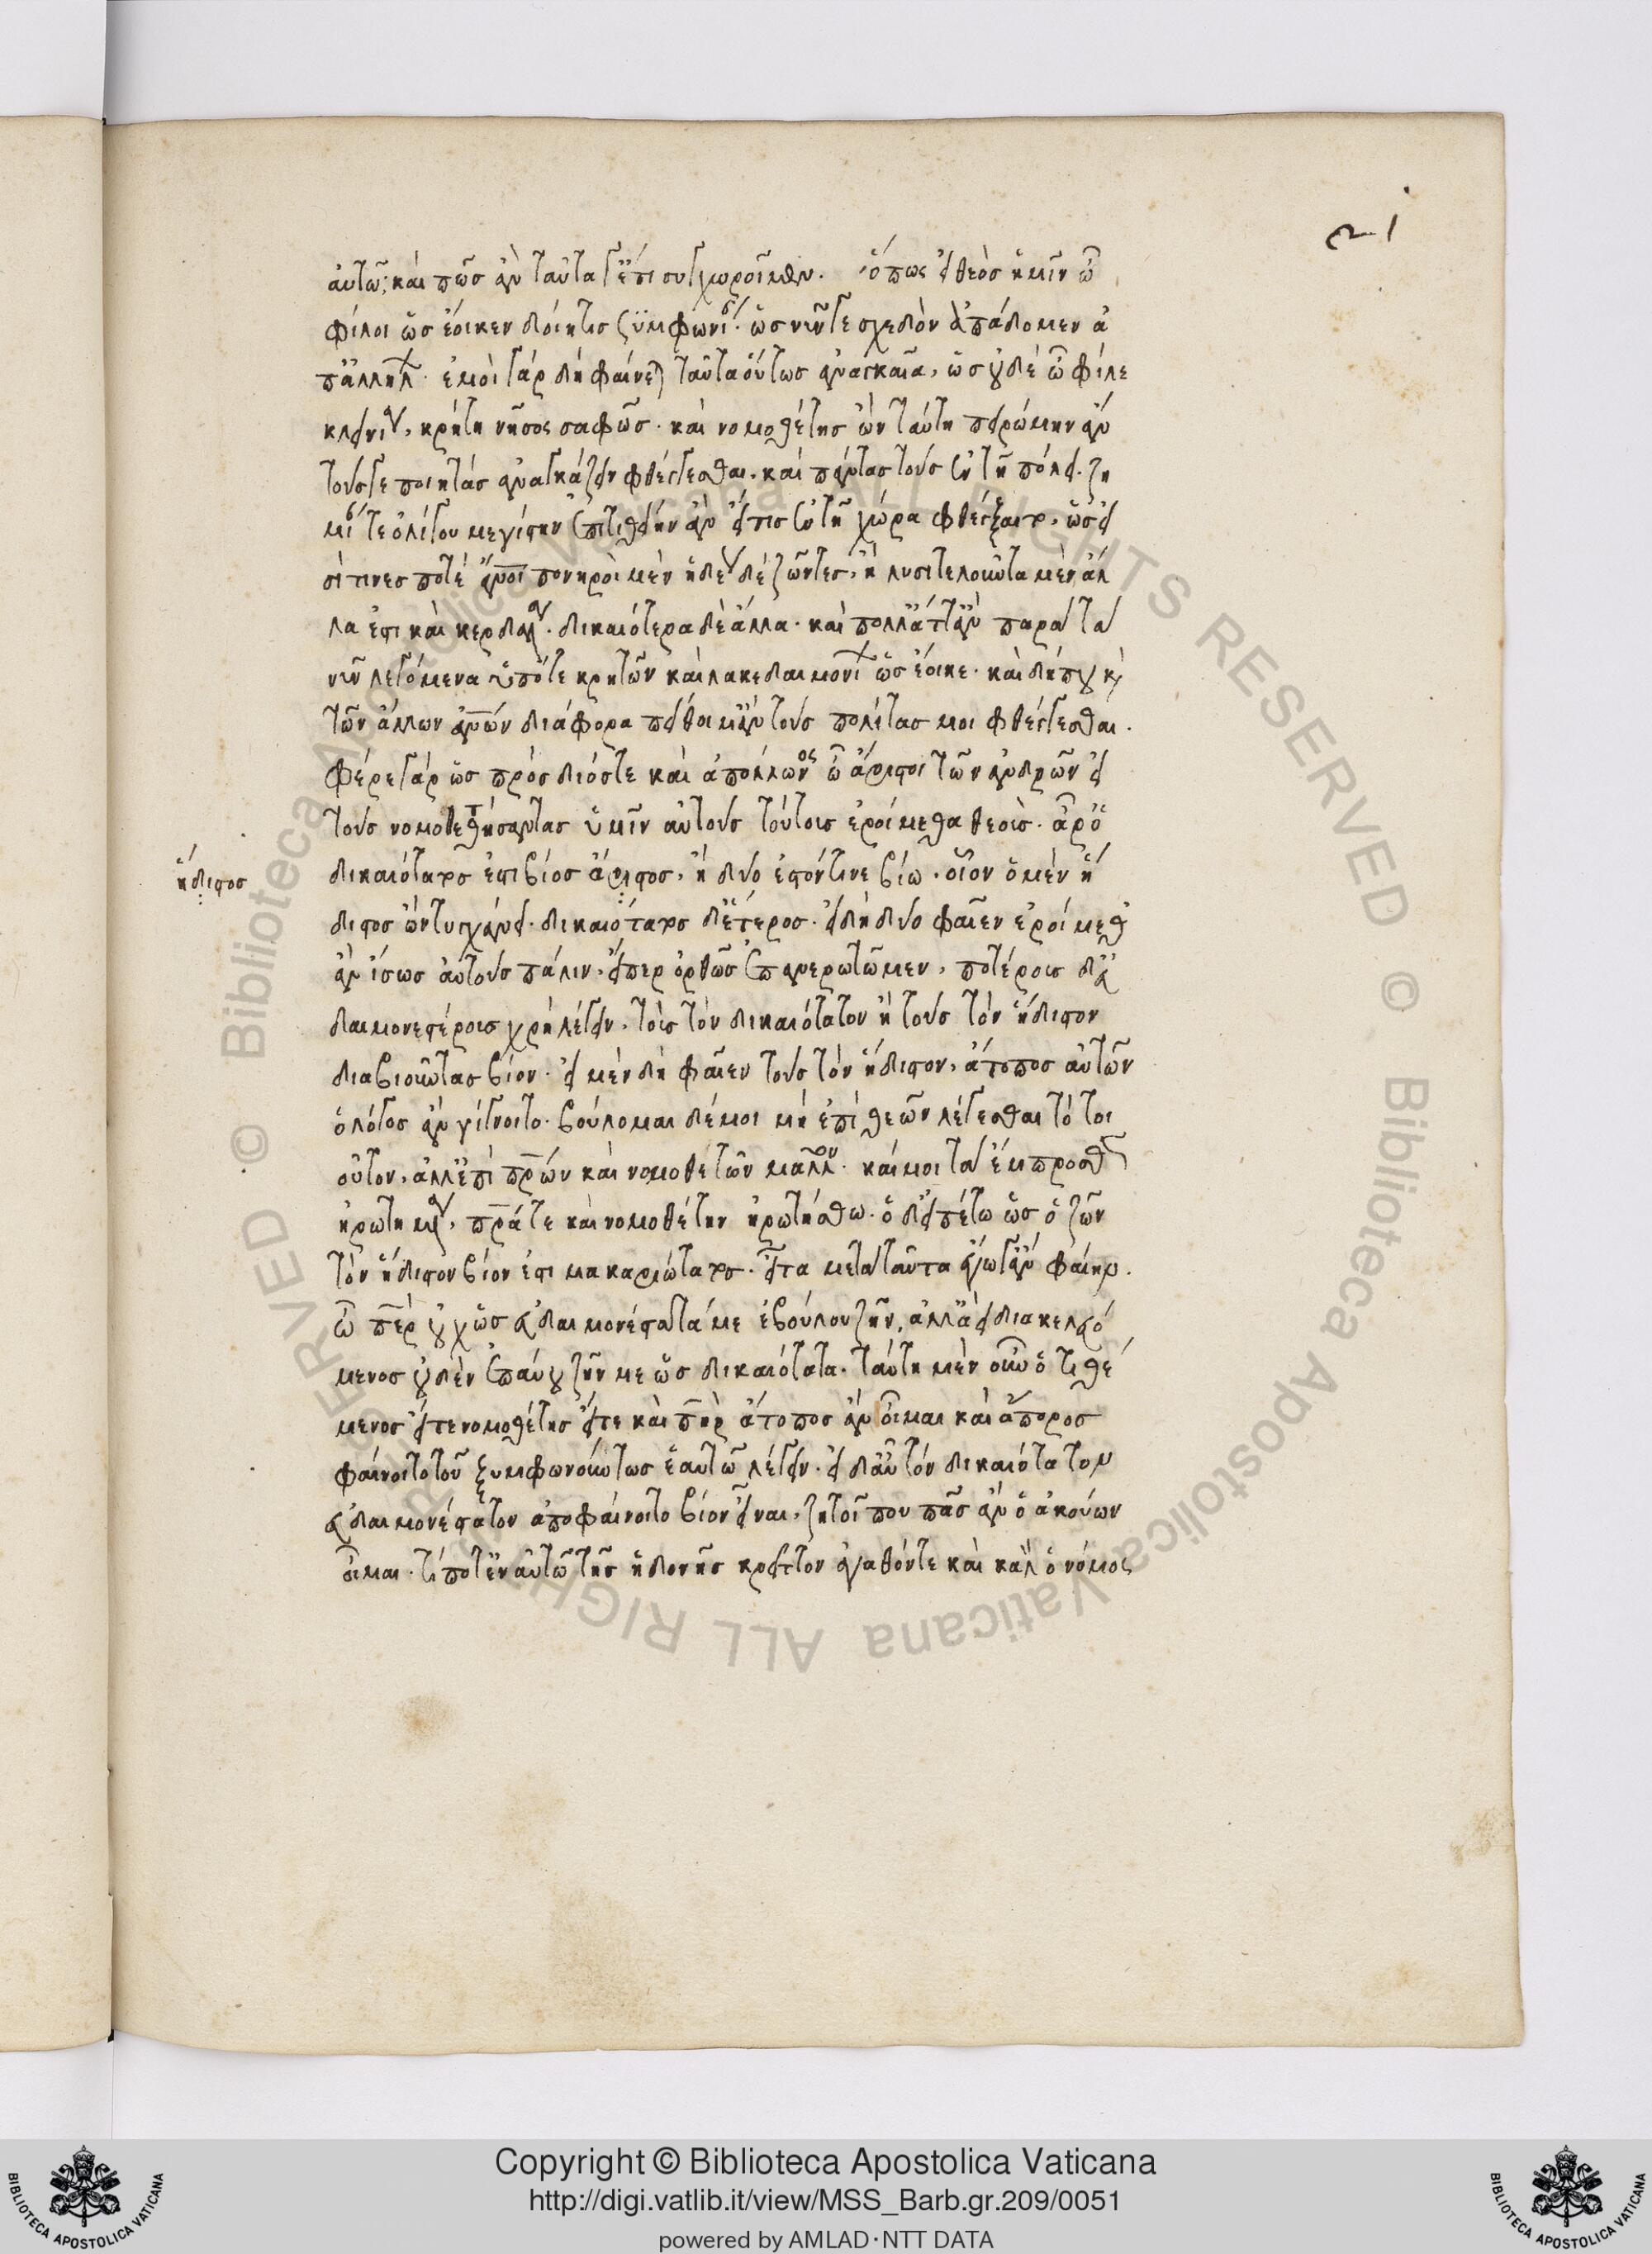 αὐτῶ; καὶ πῶσ ἂν ταῦτα γἔτι συγχωροῖμεν. ὅπως εἰ θεὸσ ἡμῖν ὦ
φίλοι ὡσ ἔοικεν δοίητισ ξυμφωνίαν. ὡσ νῦν γε σχεδὸν ἀπάδομεν ἀ
πἀλλήλων. ἐμοὶ γάρ δὴ φαίνεται ταῦτα οὕτωσ ἀναγκαῖα, ὡσ οὐδὲ ὦ φίλε
κλεινία, κρήτη νῆσος σαφῶσ. καὶ νομοθέτησ ὢν ταύτη πειρώμην ἂν
τούστε ποιητάσ ἀναγκάζειν φθέγγεσθαι. καὶ πάντασ τοὺσ ἐν τῆ πόλει. ζη
μίαν τε ὀλίγου μεγίστην ἐπιτιθείην ἂν εἴτισ ἐν τῆ χώρα φθέγξαιτο, ὡσ εἰ
σί τινεσ ποτέ ἄνθρωποι πονηροὶ μὲν ἡδέως δὲ ζῶντεσ, ἢ λυσιτελοῦντα μὲν ἀλ
λα ἐστι καὶ κερδαλέα. δικαιότερα δὲ ἄλλα. καὶ πολλἄττἂν παρὰ τὰ
νῦν λεγόμενα ὑπότε κρητῶν καὶ λακεδαιμονίων ὡσ ἔοικε. καὶ δήπου καὶ
τῶν ἄλλων ἀνθρώπων διάφορα πείθοι μἂν τοὺσ πολίτασ μοι φθέγγεσθαι.
φέρε γάρ ὡσ πρὸσ διόστε καὶ ἀπόλλωνος ὦ ἄριστοι τῶν ἀνδρῶν εἰ
τοὺσ νομοθετήσαντασ ὑμῖν αὐτοὺσ τούτοισ ἐροίμεθα θεοῖσ. ἆρ ὁ
δικαιότατοσ ἐστι βίοσ ἄριστοσ, ἢ δύο ἐστόντινε βίω. οἷον ὁ μὲν ἥ
διστοσ ὢν τυγχάνει. δικαιότατοσ δἕτεροσ. εἰ δὴ δύο φαῖεν ἐροίμεθ
ἂν ἴσωσ αὐτοὺσ πάλιν, εἴπερ ὀρθῶσ ἐπανερωτῶμεν, ποτέρουσ δεὐ
δαιμονεστέροισ χρὴ λέγειν, τοὺσ τὸν δικαιότατον ἢ τοὺσ τὸν ἥδιστον
διαβιοῦντασ βίον. εἰ μὲν δὴ φαῖεν τοὺσ τὸν ἥδιστον, ἄτοποσ αὐτῶν
ὁ λόγοσ ἂν γίγνοιτο. βούλομαι δέ μοι μὴ ἐπὶ θεῶν λέγεσθαι τὸ τοι
οῦτον, ἀλλἐπὶ πατέρων καὶ νομοθετῶν μᾶλλον. καί μοι τὰ ἔμπροσθεν
ἠρωτημένα, πατέρα τε καὶ νομοθέτην ἠρωτήσθω. ὁ δεἰπέτω ὡσ ὁ ζῶν
τὸν ἥδιστον βίον ἐστι μακαριώτατοσ. εἶτα μετὰ ταῦτα ἔγωγἂν φαίην.
ὦ πάτερ οὐχ ὡσ εὐδαιμονέστατά με ἐβούλου ζῆν. ἀλλἀεὶ διακελευό
μενοσ οὐδὲν ἐπαύου ζῆν με ὡσ δικαιότατα. ταύτη μὲν οὖν ὁ τιθέ
μενοσ εἴτε νομοθέτησ εἴτε καὶ πατὴρ ἄτοποσ ἂν οἶμαι καὶ ἄποροσ
φαίνοιτο τοῦ ξυμφωνούντωσ ἑαυτῶ λέγειν. εἰ δαὖ τὸν δικαιότατον
εὐδαιμονέστατον ἀποφαίνοιτο βίον εἶναι, ζητοῖ που πᾶσ ἂν ὁ ἀκούων
οἶμαι. τί ποτἐν αὐτῶ τῆσ ἡδονῆσ κρεῖττον ἀγαθόντε καὶ καλὸν ὁ νόμος
ἥδιστοσ
Copyright © Biblioteca Apostolica Vaticana
http://digi.vatlib.it/view/MSS_Barb.gr.209/0051
powered by AMLAD·NTT DATA
BIBLIOTECA APOSTOLICA VATICANA
BIBLIOTECA APOSTOLICA VATICANA
© Biblioteca Apostolica Vaticana ALL RIGHTS RESERVED
© Biblioteca Apostolica Vaticana ALL RIGHTS RESERVED